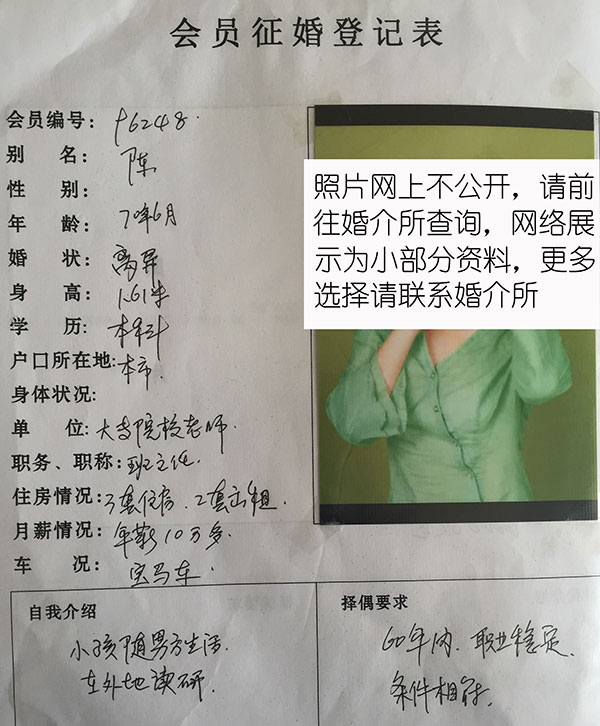 会员征婚登记表
会员编号: 96248
别 名: 陈
性 别:
年 龄: 70年6月
婚 状: 离异
身 高: 1.61米
学 历: 本科
户口所在地: 本市
身体状况:
单 位: 大专院校老师
职务、职称: 班主任
住房情况: 3套住房.2套出租.
月薪情况: 年薪10万多.
车 况: 宝马车
照片网上不公开，请前
往婚介所查询，网络展
示为小部分资料，更多
选择请联系婚介所
自我介绍
小孩随男方生活.
在外地读研.
择偶要求
60年内.职业稳定.
条件相符.